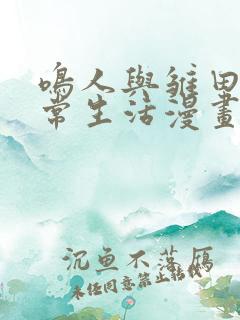 鳴人與雛田
常生活漫畫
沉魚不落雁
未經同意禁止轉載